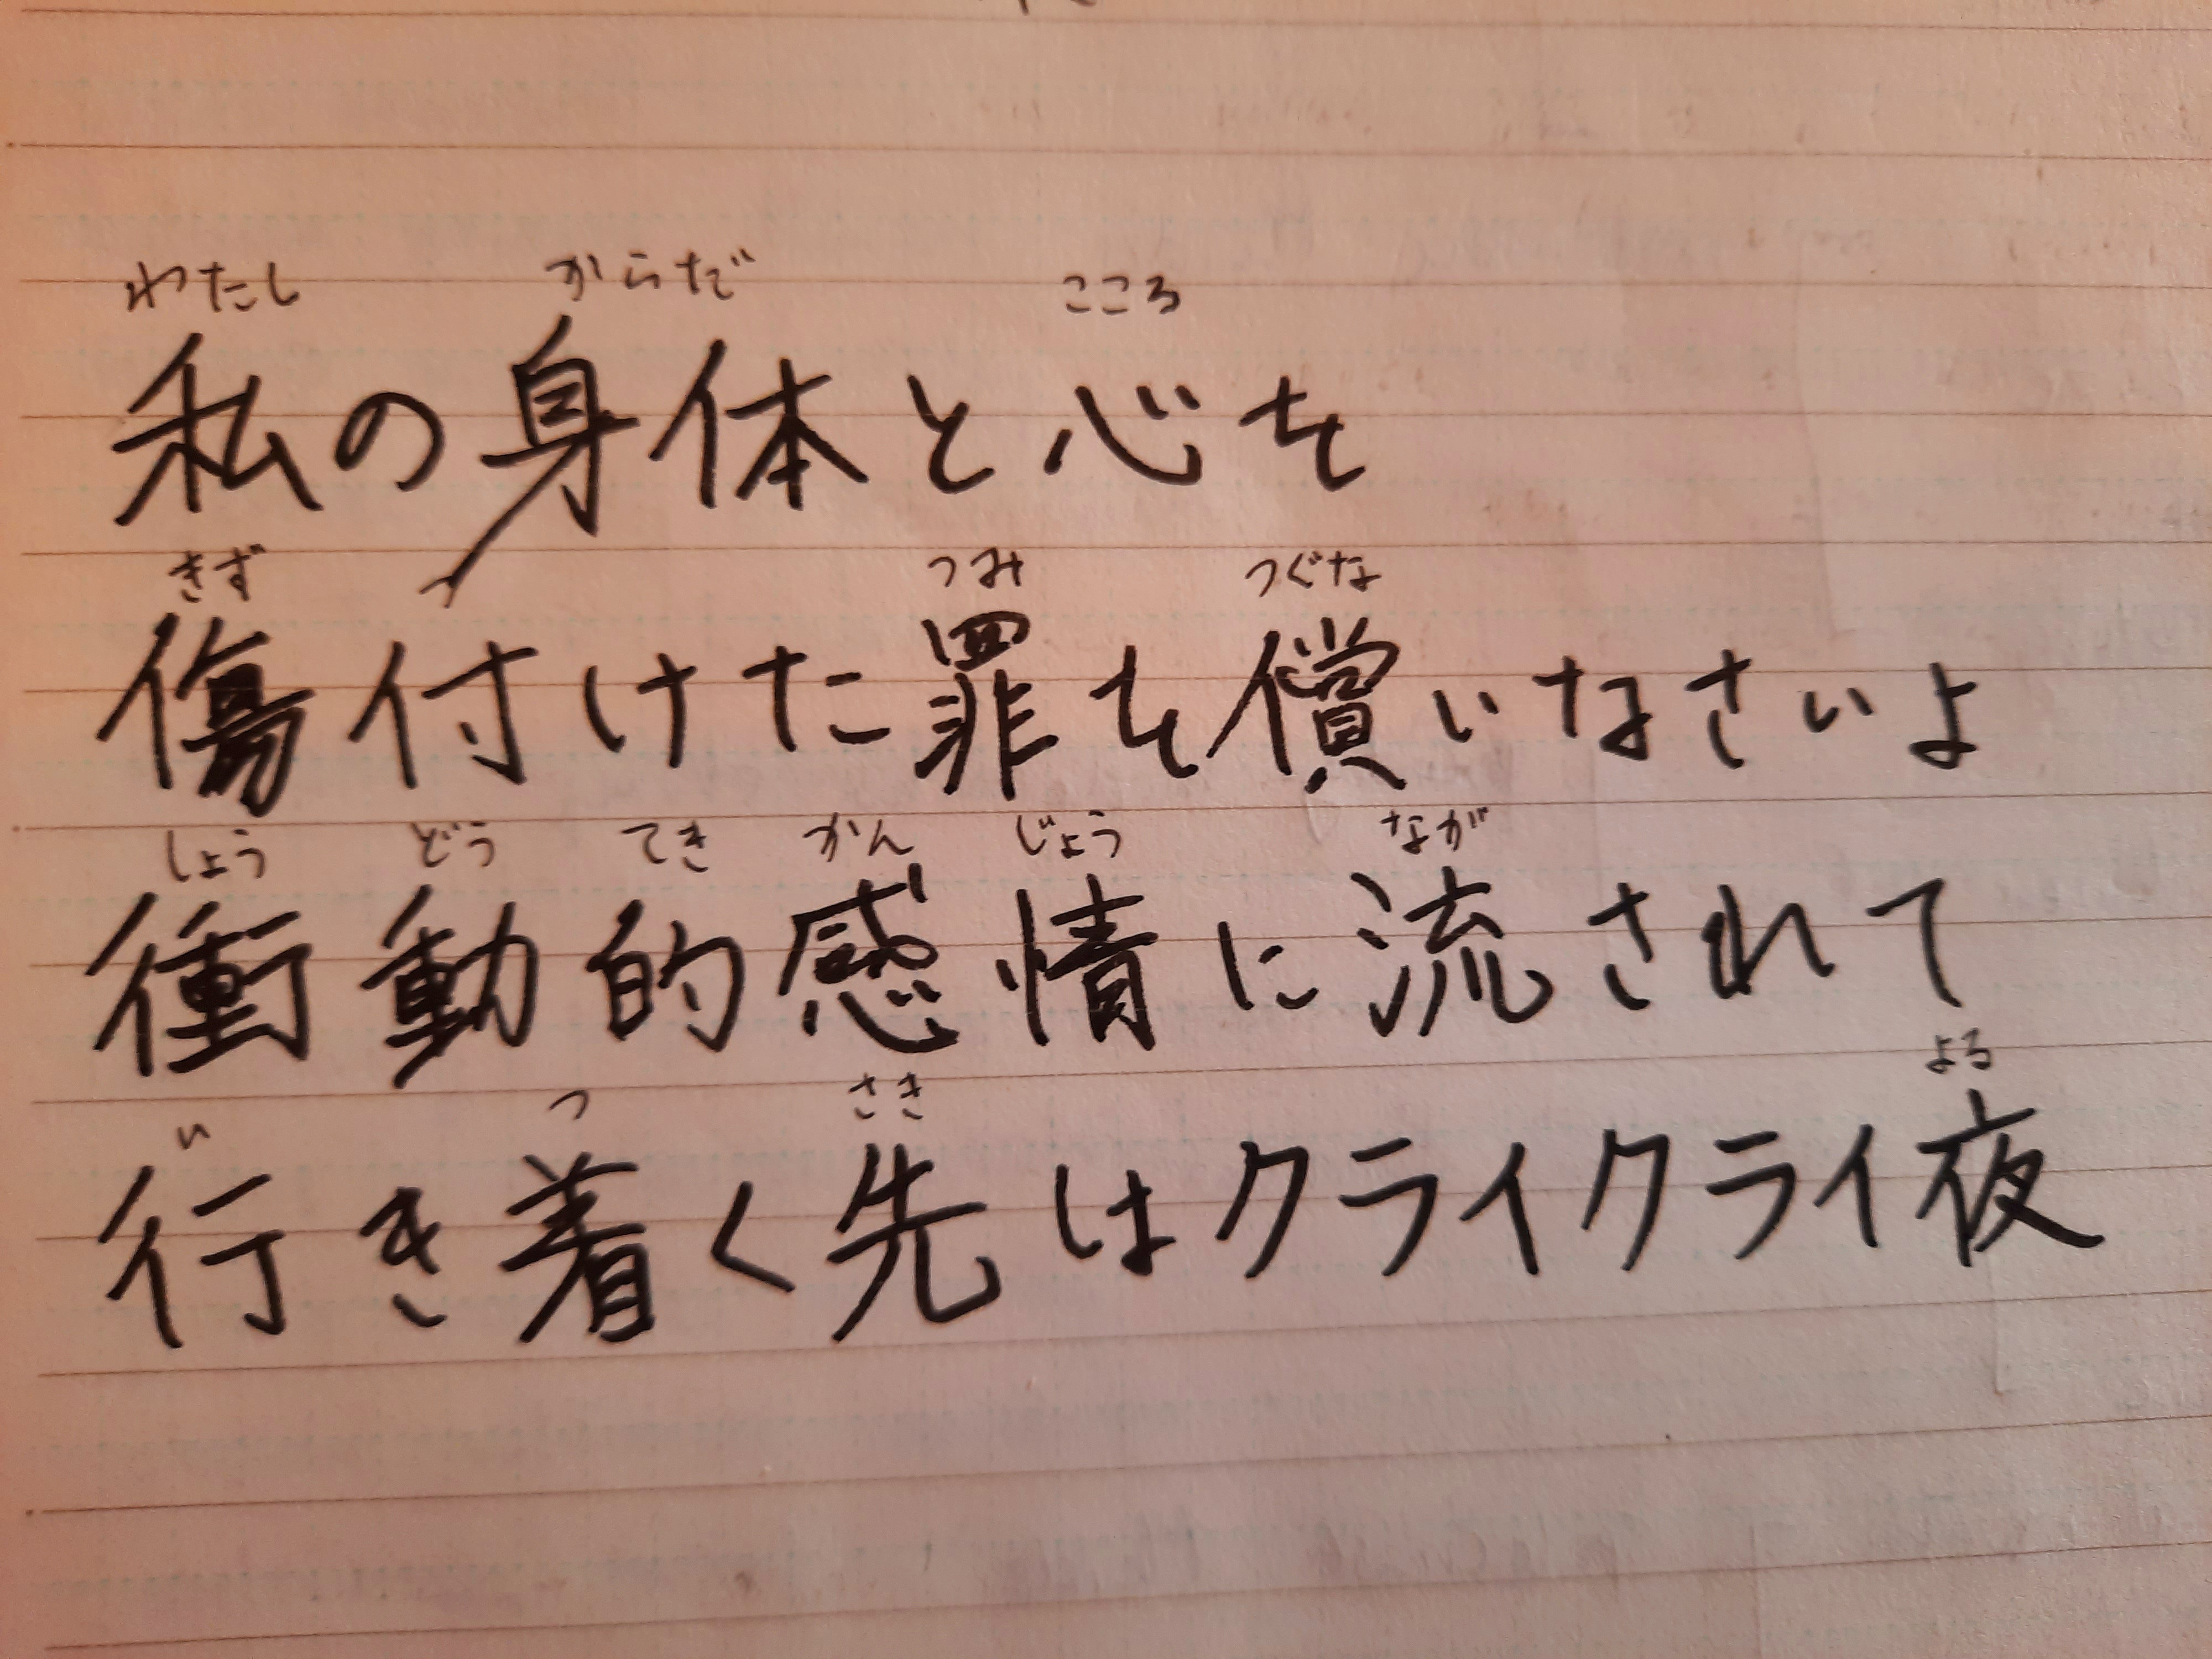 わたし からだ こころ
私の身体と心を
きず づ つみ つぐな
傷付けた罪を償いなさいよ
しょう どう てき かん じょう なが
衝動的感情に流されて
い つ さき よる
行き着く先はクライクライ夜